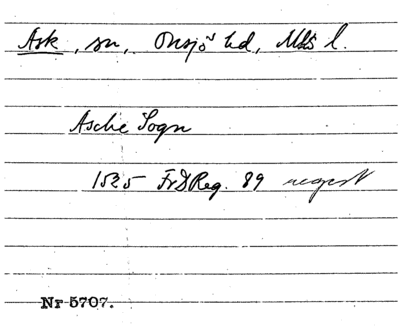 Ask, sn, Onsjö hd, Mhs l.
Asche Sogn
1525 FrDReg. 89 regest
Nr 5707.